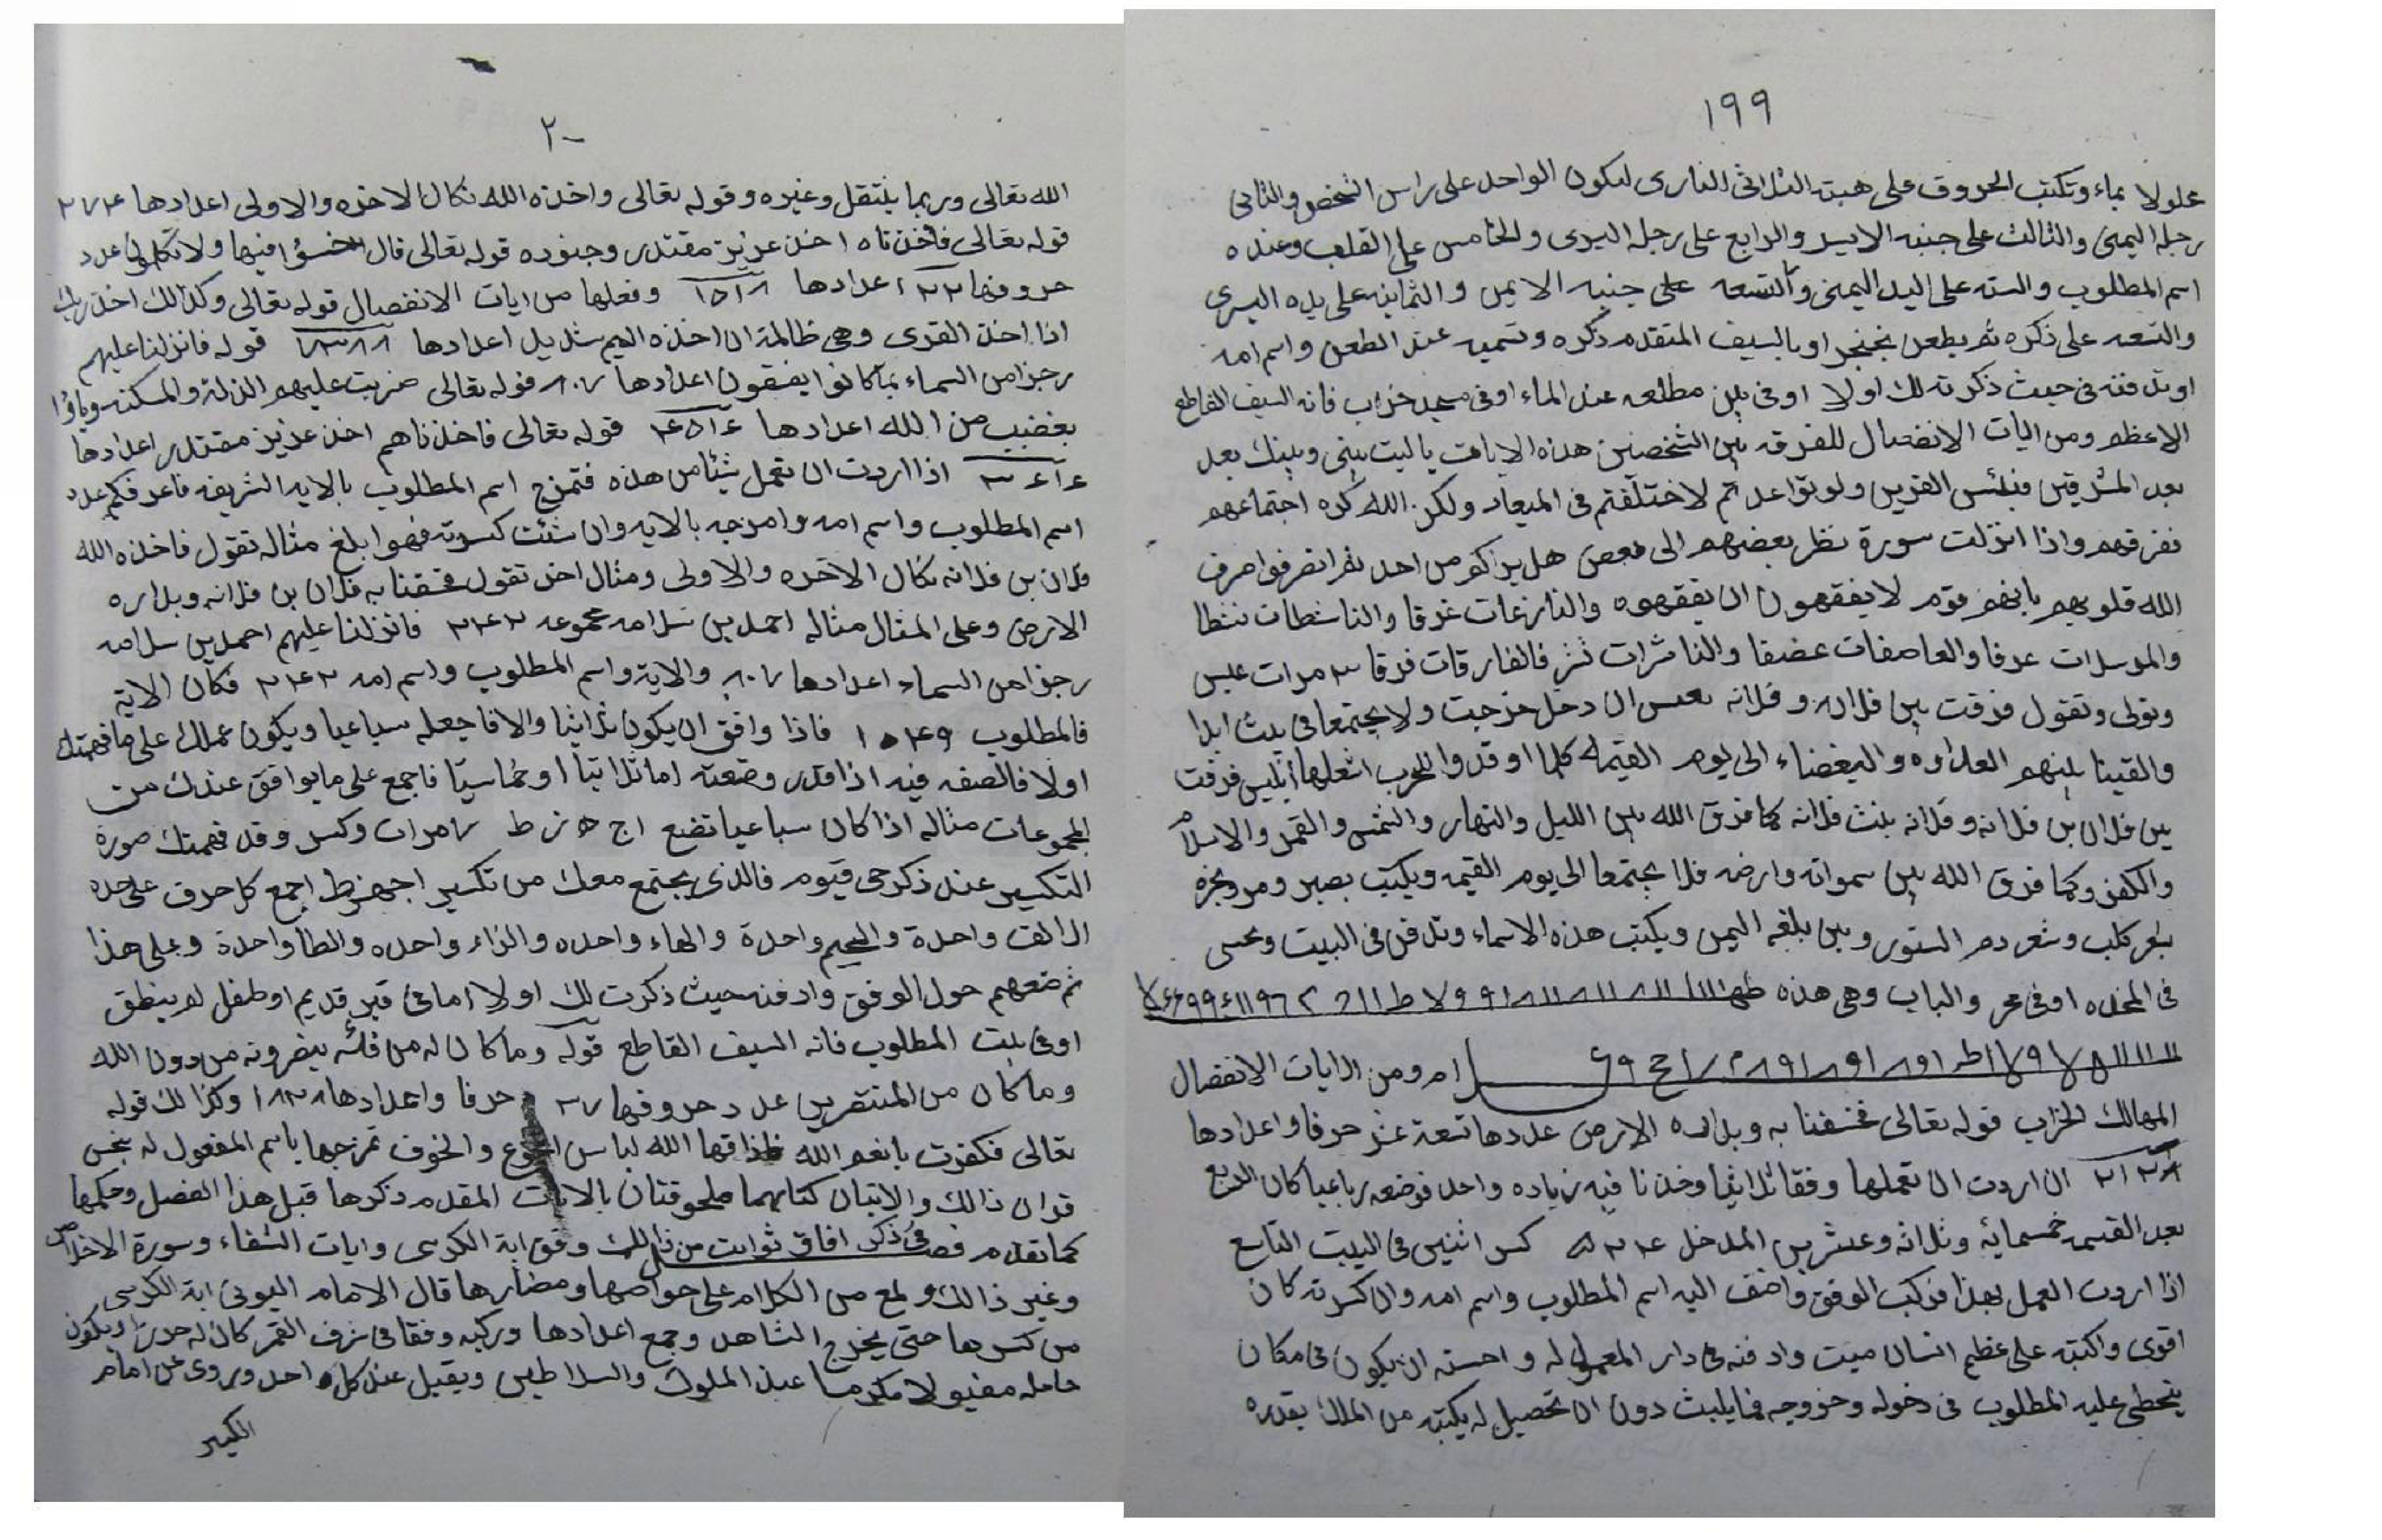 ١٩٩
علولا بماء وتكتب الحروف على هيئة الثلاثى النارى ليكون الواحد على راس الشخص والثانى
رجله اليمنى والثالث على جنبه الايسر والرابع على رجله اليسرى والخامس على القلب وعنده
اسم المطلوب والسته على اليد اليمنى والتسعه على جنبه الايمن والثمانيه على يده اليسرى
والتسعه على ذكره ثم يطعن بخنجر او بالسيف المتقدم ذكره وتسميه عند الطعن واسم امه
او تدفنه فى حيث ذكرته لك اولا او فى بئر مطلعه عند الماء او فى مسجد خراب فانه السيف القاطع
الاعظم ومن ايات الانفصال للفرقه بين الشخصين هذه الايات ياليت بينى وبينك بعد
بعد المشرقين فبئس القرين ولو تواعدتم لاختلفتم فى الميعاد ولكن الله كره اجتماعهم
ففرقهم واذا انزلت سورة نظر بعضهم الى بعض هل يراكم من احد ثم انصرفوا صرف
الله قلوبهم بانهم قوم لا يفقهون ان يفقهوه والنازعات غرقا والناشطات نشطا
والمرسلات عرفا والعاصفات عصفا والناشرات نشر فالفارقات فرقا ٣ مرات عبس
وتولى وتقول فرقت بين فلان و فلانه بعبس ان دخل خرجت ولا يجتمعا فى بيت ابدا
والقينا بينهم العداوه والبغضاء الى يوم القيمه كلما اوقدوا للحرب اشعلها ابليس فرقت
بين فلان بن فلانه وفلانه بنت فلانه كما فرق الله بين الليل والنهار والشمس والقمر والاسلام
والكفر وكما فرق الله بين سمواته وارضه فلا يجتمعا الى يوم القيمه ويكتب بصبر ومر وبخره
بشعر كلب وشعر دم السنور وبين بلغه اليمن ويكتب هذه الاسماء وتدفن فى البيت وتحسى
فى المخده او فى حجر والباب وهى هذه
ام ومن الايات الانفصال
المهالك الخراب قوله تعالى فخسفنا به وبداره الارض عددها تسعة عشر حرفا واعدادها
٢١٢٨ ان اردت ان تعملها وفقا ثلاثيا وخذنا فيه زياده واحد فوضعه رباعيا كان الربع
بعد القسمه خمسمايه وثلاثه وعشرين المدخل ٥٢٣٤ كسر اثنين فى البيت التاسع
اذا اردت العمل بهذا فركب الوفق واضف اليه اسم المطلوب واسم امه وان كسرته كان
اقوى واكتبه على عظم انسان ميت وادفنه فى دار المعمول له واحسنه ان يكون فى مكان
يتخطى عليه المطلوب فى دخوله وخروجه فما يلبث دون ان تحصيل له بكبته من الملك بقدره
٢٠
الله تعالى وربما ينتقل وغيره وقوله تعالى واخذه الله نكال الاخره والاولى اعدادها ٢٧٢٤
قوله تعالى فاخذناه اخذ عزيز مقتدر وجنوده قوله تعالى قال اخسؤا فيها ولا تكلمون عدد
حروفها ٢٢ اعدادها ١٥٢٨ وفعلها من ايات الانفصال قوله تعالى وكذالك اخذ ربك
اذا اخذ القرى وهى ظالمة ان اخذه اليم شديد اعدادها قوله فانزلنا عليهم
رجزا من السماء بما كانوا يفسقون اعدادها ٨٠٧ قوله تعالى ضربت عليهم الذلة والمسكنه وباؤا
بغضب من الله اعدادها ٤٥٢٤ قوله تعالى فاخذناهم اخذ عزيز مقتدر اعدادها
٣٤٢٤ اذا اردت ان تعمل شيئا من هذه فتمزج اسم المطلوب بالايه الشريفه فاعرف كم عدد
اسم المطلوب واسم امه وامزجه بالايه وان شئت كسرته فهو ابلغ مثاله تقول فاخذه الله
فلان بن فلانه نكال الاخره والاولى ومثال اخر تقول فخسفنا به فلان بن فلانه وبداره
الارض وعلى المثال مثاله احمد بن سلامه مجموعه ٢٤٢ فانزلنا عليهم احمد بن سلامه
رجزا من السماء اعدادها ٨٠٧ والاية واسم المطلوب واسم امه ٢٤٢ فكان الاية
فالمطلوب ١٠٤٩ فاذا وافق ان يكون ثلاثيا والا فاجعله سباعيا ويكون عملك على ما فهمتك
اولا فالصفه فيه اذا قدر وضعته اما ثلاثيا او خماسيا فاجمع على ما يوافق عندك من
المجموعات مثاله اذا كان سباعيا تضع ا ج ه ز ط ٧ مرات وكسر وقد فهمتك صورة
التكسير عند ذكر حى قيوم فالذى يجتمع معك من تكسير اجهزط اجمع كل حرف على حده
الالف واحدة والجيم واحدة والهاء واحده والزاء واحده والطا واحدة وعلى هذا
ثم تضعهم حول الوفق وادفنه حيث ذكرت لك اولا اما فى قبر قديم او طفل لم ينطق
او فى بيت المطلوب فانه السيف القاطع قوله وما كان له من فئه ينصرونه من دون الله
وما كان من المنتصرين عدد حروفها ٣٧ حرفا واعدادها ١٨٣٨ وكذالك قوله
تعالى فكفرت بانعم الله فاذاقها الله لباس الجوع والخوف تمزجها باسم المفعول له بنحس
قران ذالك والايتان كتابهما ملحوقتان بالايات المقدم ذكرها قبل هذا الفصل وحكمها
كما تقدم فصل فى ذكر افاق ثوابت من ذالك وفق اية الكرسى وايات الشفاء وسورة الاخلاص
وغير ذالك ولمع من الكلام على خواصها ومضارها قال الامام البونى اية الكرسى
من كسرها حتى يخرج الشاهد وجمع اعدادها وركبه وفقا فى شرف القمر كان له حرزا ويكون
حامله مقبولا مكرما عند الملوك والسلاطين ويقبل عند كل احد ويروى عن امام
الكبير